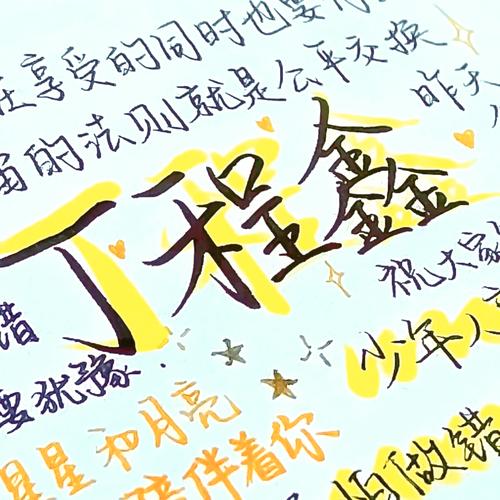 在享受的同时也要付
宙的法则就是公平交换
昨天
丁程鑫
祝大家
少年人
错
要犹豫
星星和月亮
陪伴着你
怕做错